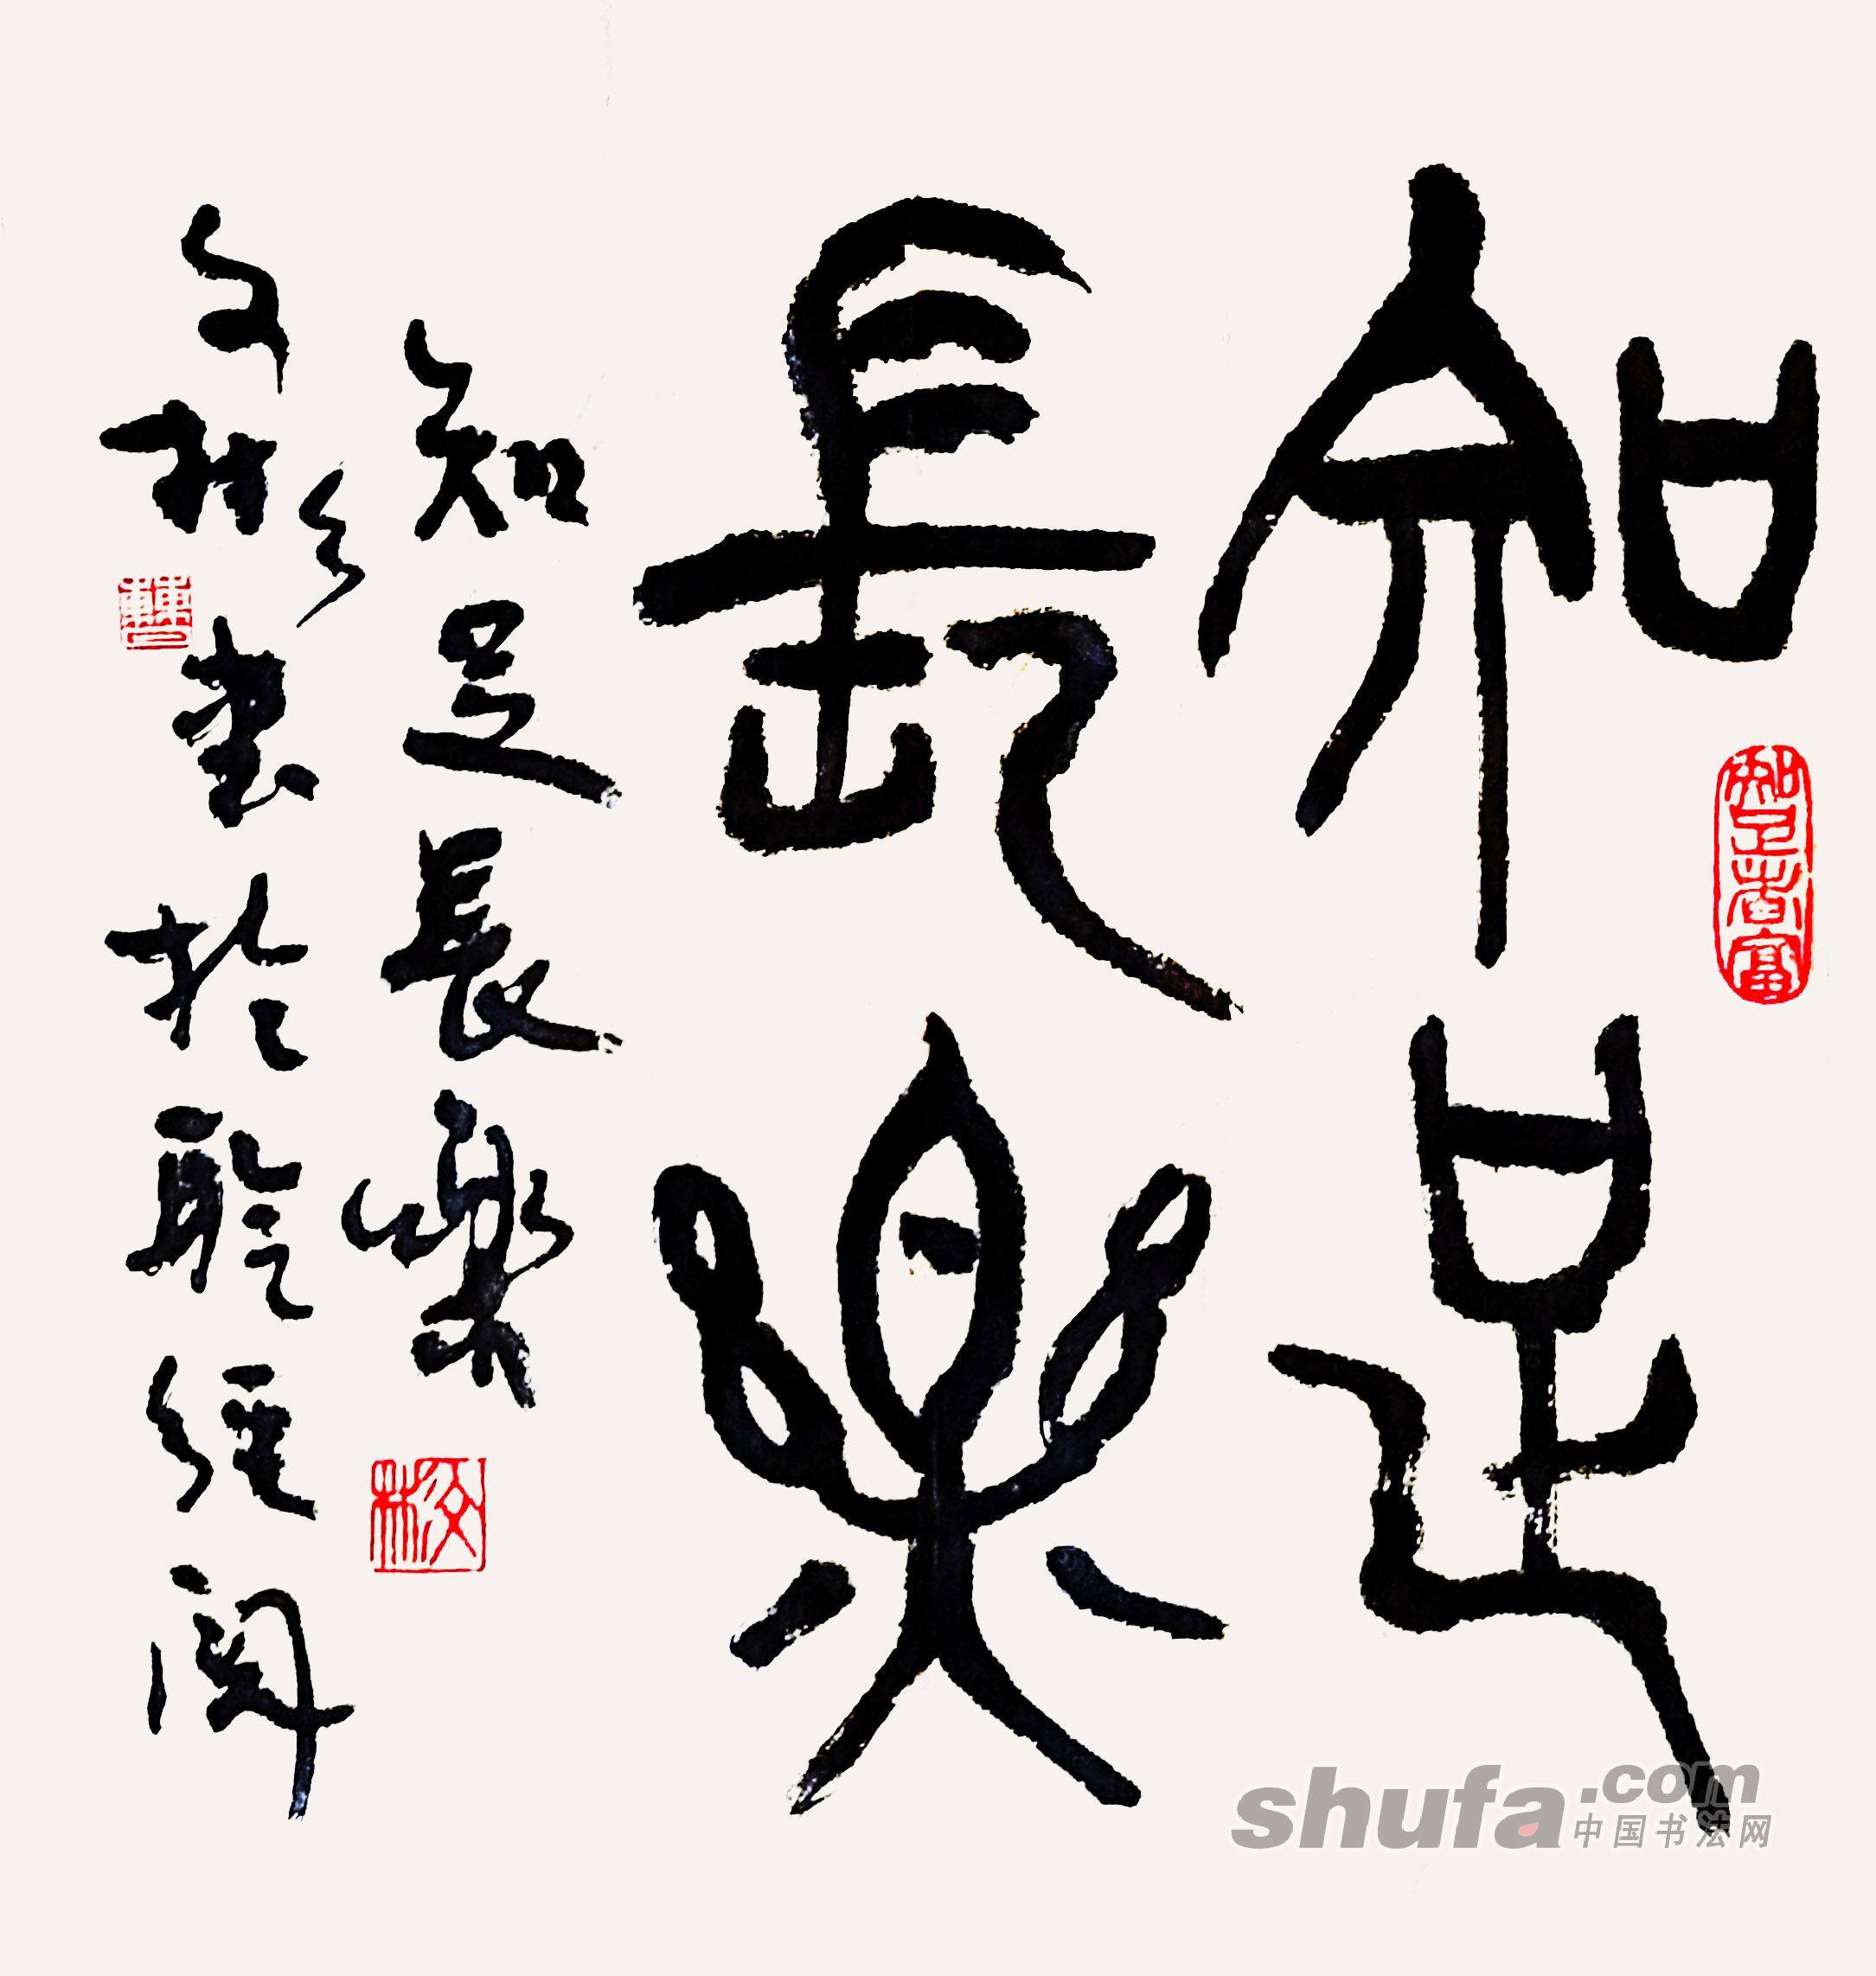 知足
長樂
知足長樂
文彬書於聽經閣
知足者富
文彬
shufa.com
中国书法网